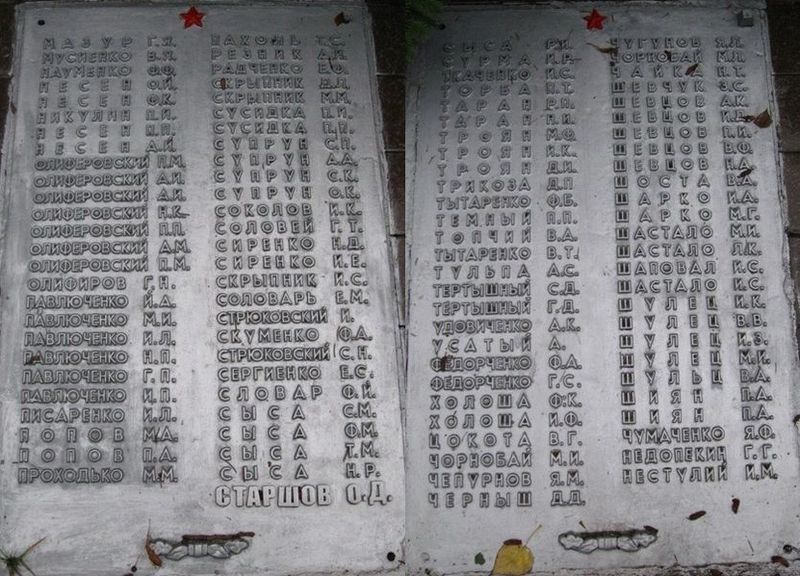 МАЗУР Г.Я.
МУСИЕНКО В.П.
НАУМЕНКО Ф.Ф.
НЕСЕН О.Й.
НЕСЕН Ф.К.
НИКУЛИН П.И.
НЕСЕН П.П.
НЕСЕН А.Й.
ОЛИФЕРОВСКИЙ П.М.
ОЛИФЕРОВСКИЙ Д.И.
ОЛИФЕРОВСКИЙ А.И.
ОЛИФЕРОВСКИЙ Н.К.
ОЛИФЕРОВСКИЙ П.П.
ОЛИФЕРОВСКИЙ А.М.
ОЛИФЕРОВСКИЙ П.М.
ОЛИФИРОВ Г.Н.
ПАВЛЮЧЕНКО Й.Д.
ПАВЛЮЧЕНКО М.И.
ПАВЛЮЧЕНКО И.Л.
ПАВЛЮЧЕНКО Н.П.
ПАВЛЮЧЕНКО Г.П.
ПАВЛЮЧЕНКО И.П.
ПИСАРЕНКО И.Л.
ПОПОВ М.А.
ПОПОВ П.А.
ПРОХОДЬКО М.М.
ПАХОЛЬ Т.С.
РЕЗНИК А.И.
РАДЧЕНКО Е.Ф.
СКРЫПНИК Д.П.
СКРЫПНИК М.М.
СУСИДКА П.И.
СУСИДКА П.П.
СУПРУН С.П.
СУПРУН А.А.
СУПРУН С.К.
СУПРУН О.К.
СОКОЛОВ И.К.
СОЛОВЕЙ Г.Т.
СИРЕНКО Н.Д.
СИРЕНКО И.Е.
СКРЫПНИК И.С.
СОЛОВАРЬ Е.М.
СТРЮКОВСКИЙ И.
СКУМЕНКО Ф.А.
СТРЮКОВСКИЙ С.Н.
СЕРГИЕНКО Е.С.
СЛОВАР Ф.Й.
СЫСА С.М.
СЫСА Ф.М.
СЫСА Т.М.
СЫСА Н.Р.
СТАРШОВ О.Д.
СЫСА Р.И.
СУРМА И.Р.
ТКАЧЕНКО И.С.
ТОРБА П.Т.
ТАРАН Р.П.
ТАРАН Н.И.
ТРОЯН М.Ф.
ТРОЯН И.К.
ТРОЯН Д.И.
ТРИКОЗА Д.П
ТЫТАРЕНКО Ф.Б.
ТЕМНЫЙ П.П.
ТОПЧИЙ В.А.
ТЫТАРЕНКО В.Т.
ТУЛЬПА А.С.
ТЕРТЫШНЫЙ С.Д.
ТЕРТЫШНЫЙ Г.Д.
УДОВИЧЕНКО А.К.
УСАТЫЙ А.
ФЕДОРЧЕНКО Ф.А.
ФЕДОРЧЕНКО Г.С.
ХОЛОША Ф.К.
ХОЛОША И.Ф.
ЦОКОТА В.Г.
ЧОРНОБАЙ М.И.
ЧЕПУРНОВ Я.М.
ЧЕРНЫШ Д.Д.
ЧУГУНОВ Я.Л.
ЧОРНОБАЙ М.Л.
ЧАЙКА Н.Т.
ШЕВЧУК З.С.
ШЕВЦОВ А.К.
ШЕВЦОВ И.Д.
ШЕВЦОВ П.И.
ШЕВЦОВ В.Ф.
ШЕВЦОВ Н.А.
ШОСТА В.А.
ШАРКО И.А.
ШАРКО М.Г.
ШАСТАЛО М.И.
ШАСТАЛО Л.К.
ШАПОВАЛ И.С.
ШАСТАЛО И.С.
ШУЛЕЦ И.К.
ШУЛЕЦ В.В.
ШУЛЕЦ И.З.
ШУЛЕЦ М.И.
ШУЛЬЦ В.А.
ШИЯН П.А.
ШИЯН П.А.
ЧУМАЧЕНКО Я.Ф.
НЕДОПЕКИН Г.Г.
НЕСТУЛИЙ И.М.